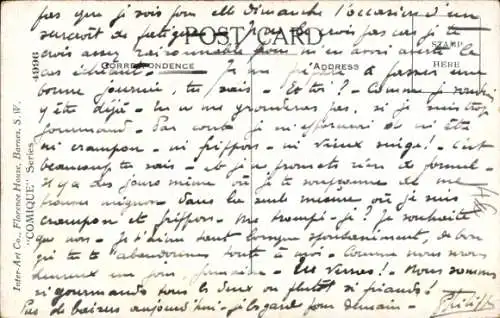 pas que je sois pour elle dimanche l'occasion d'un
surcroît de fatigue
POST CARD
crois assez raisonnable pour m'en avoir averti le
STAMP
HERE
cas échéant - Je me prépare à passer une
CORRESPONDENCE
ADDRESS
bonne journée, tu sais - Et toi? - Comme je voudrais
y être déjà - Tu ne me gronderas pas, si je suis trop
gourmand - Par contre je m'efforcerai de n'être
ni crampon - ni griffon - ni vieux singe! - C'est
beaucoup tu sais - et je ne promets rien de formel -
il y a des jours même où je te soupçonne de me
trouver mignon - dans la seule mesure où je suis
crampon et griffon - Me trompé-je? Je souhaite
que non - Je t'aime tant lorsque spontanément, de bon
gré tu t'abandonnes toute à moi - Comme nous nous
sommes un jour
si gourmands tous les deux ou plutôt si friands!
Pas de baisers aujourd'hui - je les garde pour demain -
4996
"COMIQUE" Series
Inter-Art Co., Florence House, Barnes, S.W.